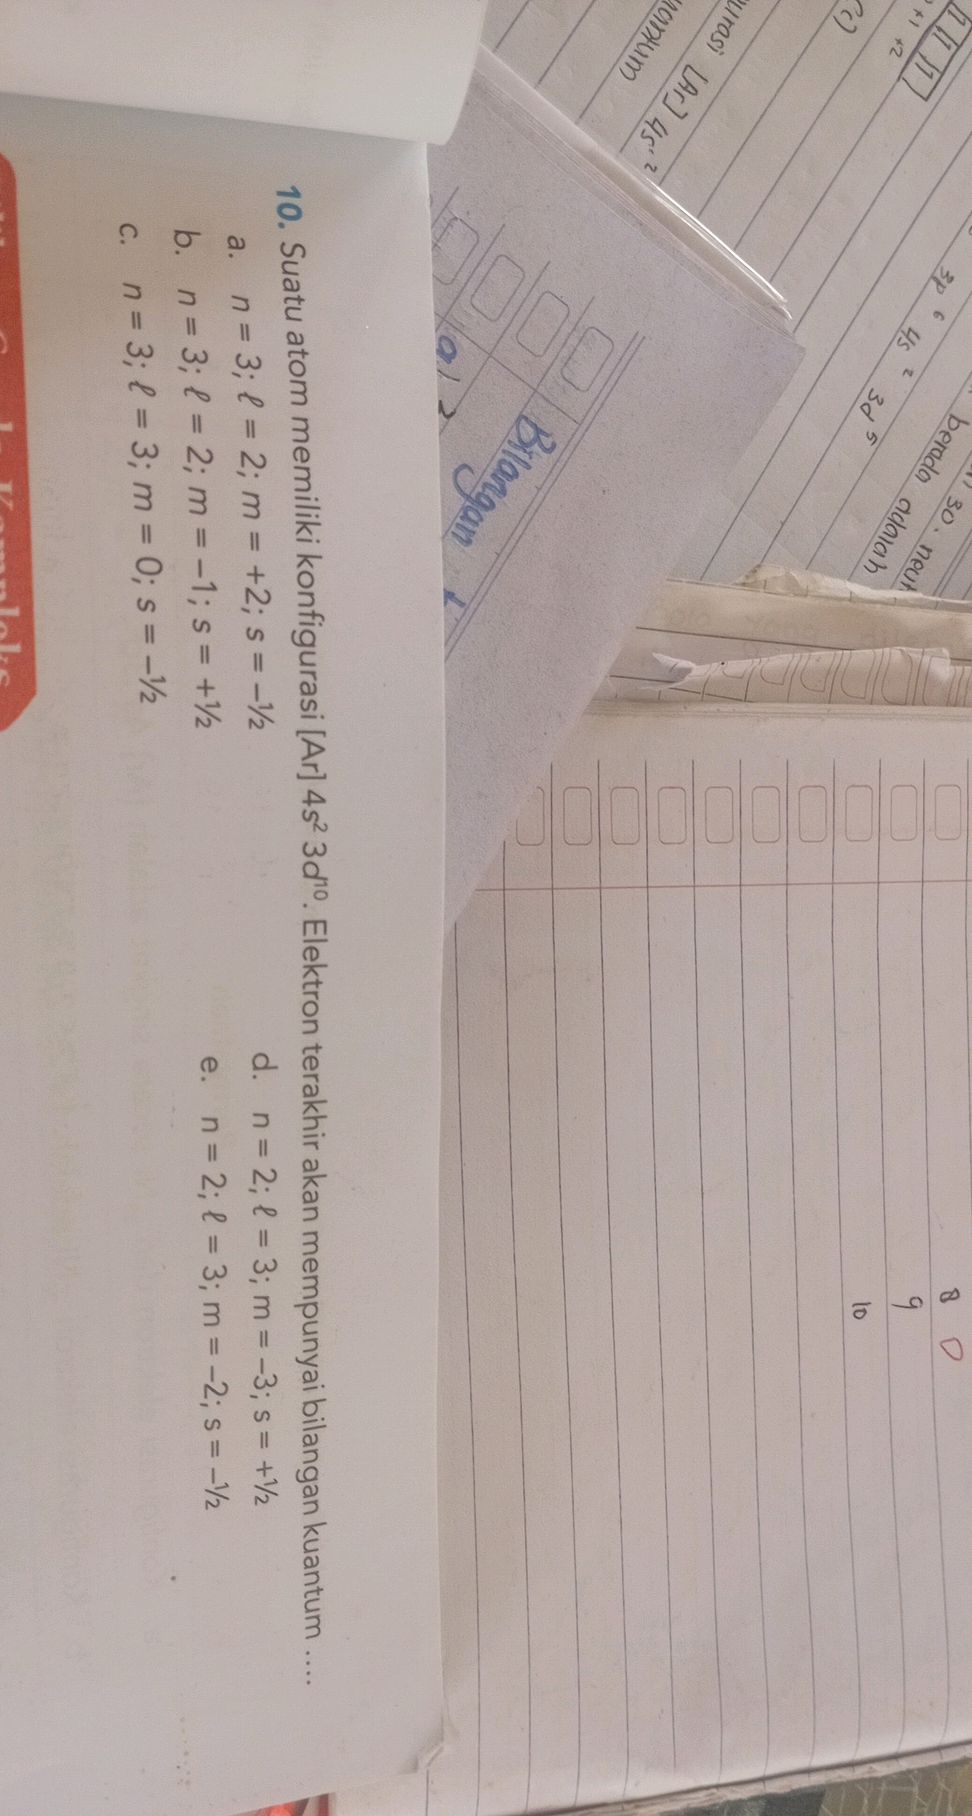 10. Suatu atom memiliki konfigurasi [Ar] 4s² 3d¹⁰. Elektron terakhir akan mempunyai bilangan kuantum ....
a. n = 3; ℓ = 2; m = +2; s = –½
b. n = 3; ℓ = 2; m = –1; s = +½
c. n = 3; ℓ = 3; m = 0; s = –½
d. n = 2; ℓ = 3; m = –3; s = +½
e. n = 2; ℓ = 3; m = –2; s = –½
Bilangan
+1 +2
[Ar] 4s²
3p⁶ 4s² 3d⁵
30.
berada adalah
8 D
9
10